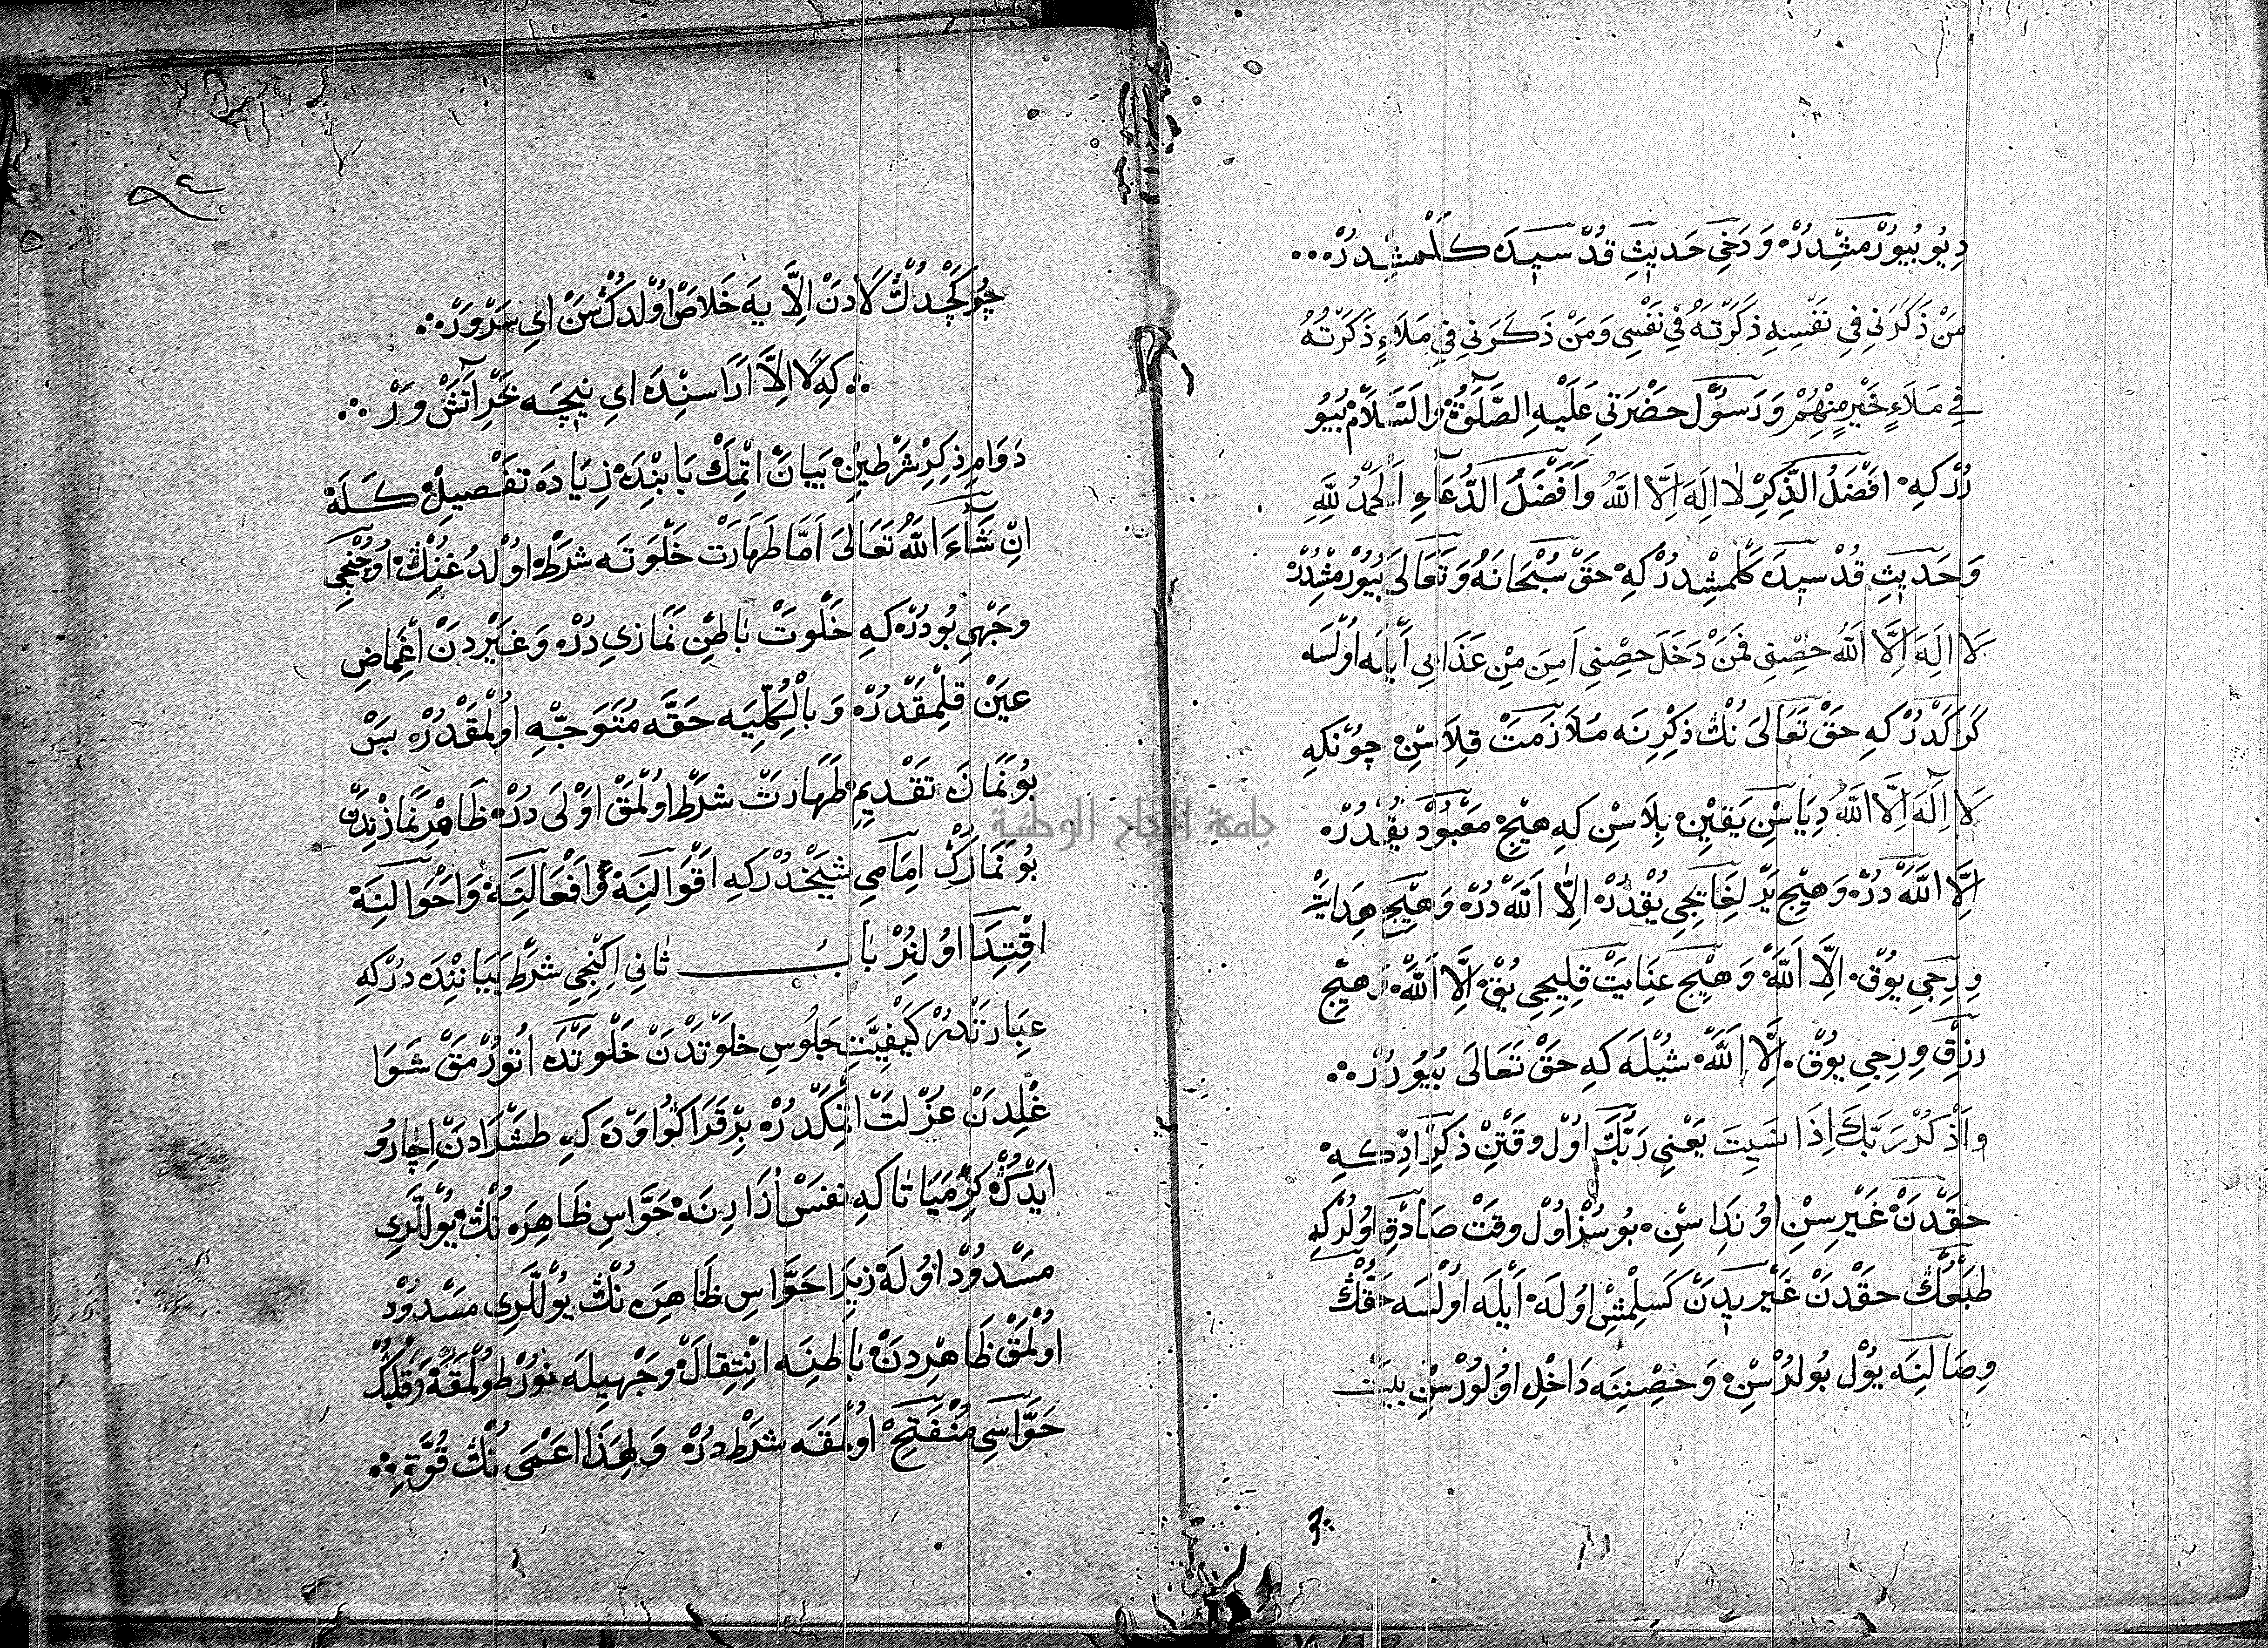 دِيُو بُيُورْمشِّدُرْ وَ دَخِي حَدِيثِ قُدْسِيدَه كَلْمشِدُرْ...
مَنْ ذَكَرَنِي فِي نَفْسِهِ ذَكَرْتُهُ فِي نَفْسِي وَمَنْ ذَكَرَنِي فِي مَلَاءٍ ذَكَرْتُهُ
فِي مَلَاءٍ خَيْرٍ مِنْهُمْ وَ رَسُول حَضْرَتِي عَلَيْهِ الصَّلَوةُ وَالسَّلَامْ بُيُو
رُرْ كِهْ اَفْضَلُ الذِّكِرْ لَا اِلَهَ اِلَّا اللَّهُ وَاَفْضَلُ الدُّعَاءِ اَلْحَمْدُ لِلَّهِ
وَ حَدِيثِ قُدْسِيدَه كَلْمشِدُرْ كِهْ حَقْ سُبْحَانَهُ وَتَعَالَى بُيُورْمشِدُرْ
لَا اِلَهَ اِلَّا اللَّهُ حِصْنِي فَمَنْ دَخَلَ حِصْنِي اَمِنَ مِنْ عَذَابِي اَيْلَه اُولْسَه
كَرَكْدُرْ كِهِ حَقْ تَعَالَى نُكْ ذِكْرِنَه مُلَازَمَتْ قِلَاسِنْ چُونْكِهِ
لَا اِلَهَ اِلَّا اللَّهُ دِيَاسِنْ يَقِينْ بِلَاسِنْ كِهِ هِيچْ مَعْبُودْ يُقْدُرْ
اِلَّا اللَّهْ دُرْ وَ هِيچْ يَرْلِغَايِجِي يُقْدُرْ اِلَّا اَللَّهْ دُرْ وَ هِيچْ هِدَايَتْ
وِرِجِي يُوقْ اِلَّا اَللَّهْ وَ هِيچْ عِنَايَتْ قِلِيجِي يُقْ اِلَّا اَللَّهْ وَ هِيچْ
رِزْقْ وِرِجِي يُوقْ اِلَّا اَللَّهْ شُيْلَه كِهِ حَقْ تَعَالَى بُيُورُرْ ∴
وَاذْكُرْ رَبَّكَ اِذَا نَسِيتَ يَعْنِي رَبَّكَ اُولْ وَقْتِنْ ذِكِرْ اِدْ كِهْ
حَقْدَنْ غَيْرِسِنْ اُونُدَاسِنْ بُو سُزْ اُولْ وَقَتْ صَادِقْ اُولُرْ كِهِ
طَبْعُكْ حَقْدَنْ غَيْرِيدَنْ كَسِلْمِشْ اُولَه اَيْلَه اُولْسَه حَقُّكْ
وِصَالِنَه يُولْ بُولُرْسِنْ وَ حِصْنِنَه دَاخِلْ اُولُورْسِنْ بَيْتْ
چُو كَچْدُكْ لَادَنْ اِلَّا يَه خَلَاصْ اُولْدُكْ سَنْ اَيِ سَرْوَرْ ∴
∴ كِهِ لَا اِلَّا اَرَاسِنْدَه اَيِ نِيچَه بَحْرِ آتَشْ وَرْ ∴
دَوَامِ ذِكِرْ شَرْطِينْ بَيَانْ اِتْمَكْ بَابِنْدَه زِيَادَه تَفْصِيلْ كَلَهْ
اِنْ شَاءَ اللَّهُ تَعَالَى اَمَّا طَهَارَتْ خَلْوَتَه شَرْطْ اُولْدُغِنُكْ اُوچُنْجِي
وَجْهِي بُودُرْ كِهِ خَلْوَتْ بَاطِنْ نَمَازِي دُرْ وَ غَيْرِدَنْ اِغْمَاضِ
عَيْنْ قِلْمَقْدُرْ وَ بِالْكُلِّيَه حَقَّه مُتَوَجِّه اُولْمَقْدُرْ پَسْ
بُو نَمَازَه تَقْدِيمِ طَهَارَتْ شَرْطْ اُولْمَقْ اَوْلَى دُرْ ظَاهِرْ نَمَازِنْدَنْ
بُو نَمَازُكْ اِمَامِي شَيْخْدُرْ كِهِ اَقْوَالِنَه وَ اَفْعَالِنَه وَ اَحْوَالِنَه
اِقْتِدَا اُولِنُرْ بَابُ ثَانِي اِكِنْجِي شَرْطْ بَيَانِنْدَه دُرْ كِهِ
عِبَارَتْدُرْ كَيْفِيَّتِ جُلُوسِ خَلْوَتْدَنْ خَلْوَتْدَه اُتُورْمَقْ شَوَا
غِلْدَنْ عُزْلَتْ اِتْمَكْدُرْ بِرْ قَرَاكُو اَوْدَه كِهِ طَشْرَادَنْ اِچَارُو
اَيْدُكْ كِرْمَيَا تَا كِهِ نَفَسْ اُزَارِنَه حَوَّاسِ ظَاهِرَه نُكْ يُولْلَرِي
مَسْدُودْ اُولَه زِيرَا حَوَّاسِ ظَاهِرَه نُكْ يُولْلَرِي مَسْدُودْ
اُولْمَقْ ظَاهِرْدَنْ بَاطِنَه اِنْتِقَالْ وَجْهِيلَه نُورْطُولْمَقَه وَ قَلْبُكْ
حَوَّاسِي مُنْفَتِحْ اُولْمَقَه شَرْطْ دُرْ وَ لِهَذَا اَعْمَى نُكْ قُوَّةِ ∴
جامعة النجاح الوطنية